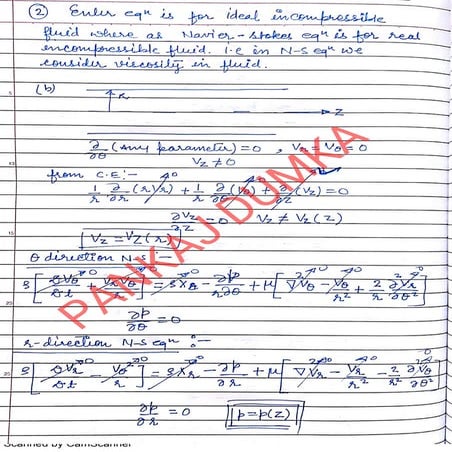 ② Euler eqⁿ is for ideal incompressible
fluid where as Navier-stokes eqⁿ is for real
incompressible fluid. i.e in N-S eqⁿ we
consider viscosity in fluid.
(b)
r
z
∂/∂θ (Any parameter) = 0 , Vr = Vθ = 0
Vz ≠ 0
from C.E:-
1/r ∂/∂r (r Vr)→0 + 1/r ∂(Vθ)/∂θ→0 + ∂/∂z (Vz) = 0
∂Vz/∂z = 0 Vz ≠ Vz(z)
Vz = Vz(r)
θ direction N-S :-
ρ[DVθ/Dt→0 + VrVθ/r→0] = ρXθ→0 - ∂p/r∂θ + μ[∇²Vθ→0 - Vθ/r²→0 + 2/r² ∂Vr/∂θ→0]
∂p/∂θ = 0
r-direction N-S eqⁿ :-
ρ[DVr/Dt→0 - Vθ²/r→0] = ρXr→0 - ∂p/∂r + μ[∇²Vr→0 - Vr/r²→0 - 2/r² ∂Vθ/∂θ→0]
∂p/∂r = 0 p = p(z)
PANKAJ DUMKA
Scanned by CamScanner